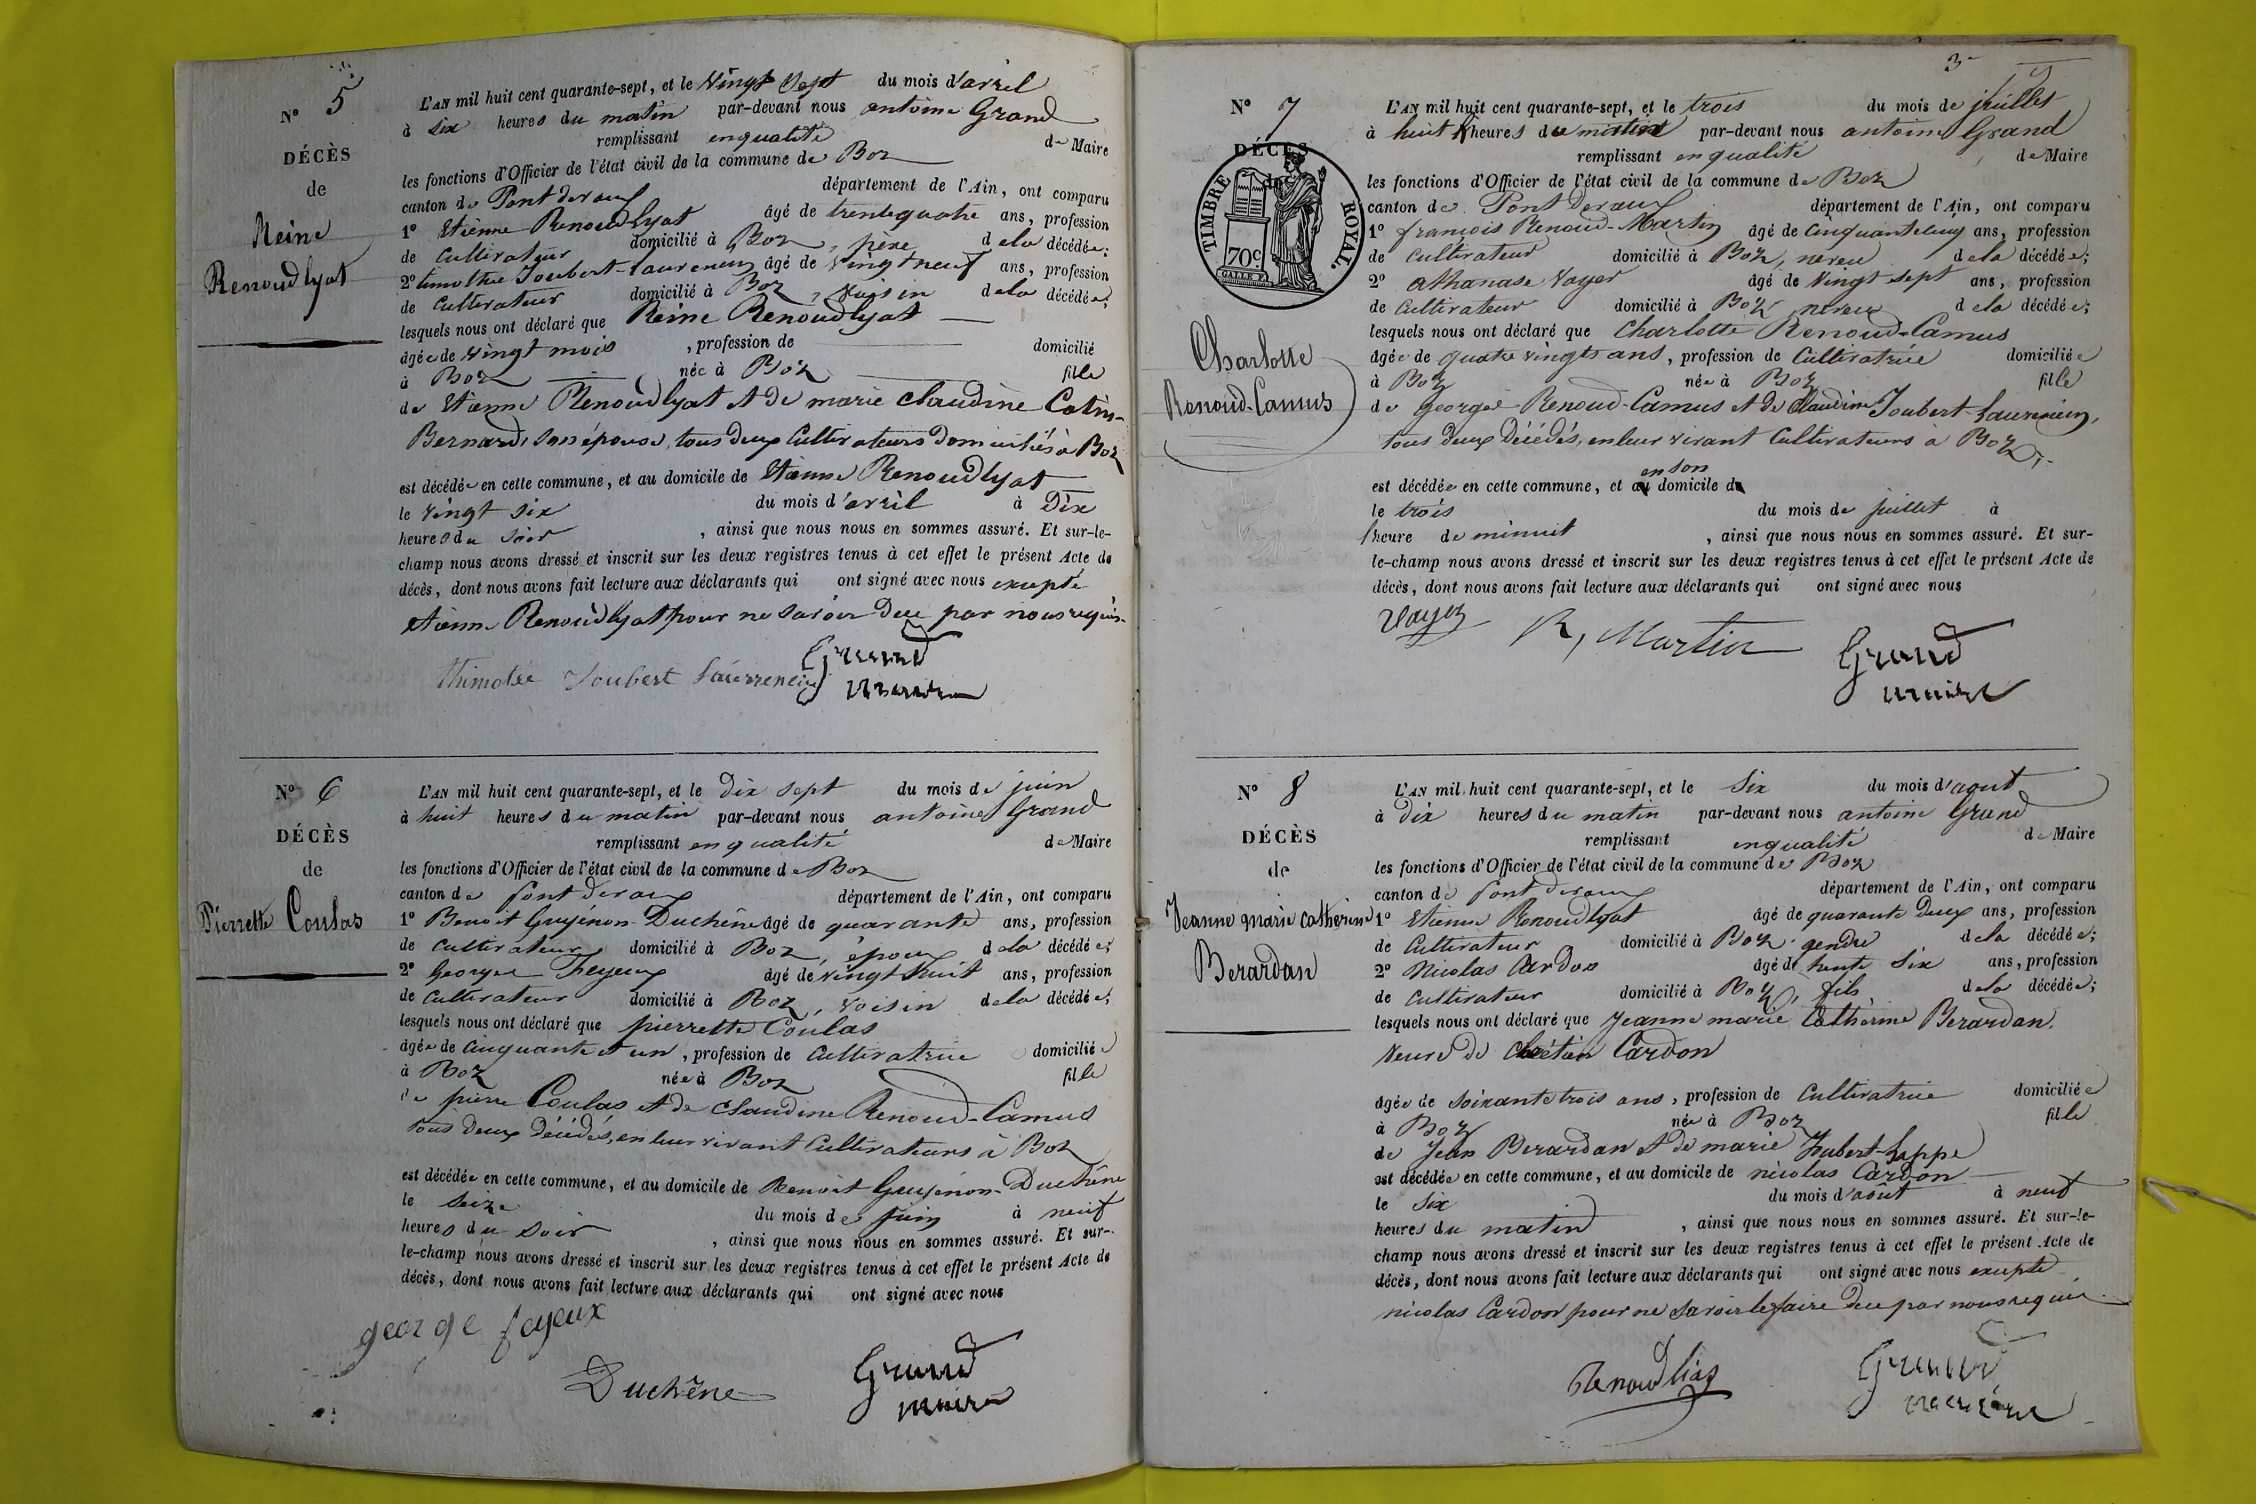 N° 5
DÉCÈS
de
Reine
Renoud lyat
L'AN mil huit cent quarante-sept, et le vingt Sept du mois d'avril
à six heures du matin par-devant nous antoine Grand
remplissant en qualité de Maire
les fonctions d'Officier de l'état civil de la commune de Boz
canton de Pont de vaux département de l'Ain, ont comparu
1° Etienne Renoud lyat âgé de trente quatre ans, profession
de Cultivateur domicilié à Boz, père de la décédée;
2° timothée Joubert-Laurencin âgé de vingt neuf ans, profession
de Cultivateur domicilié à Boz, voisin de la décédée;
lesquels nous ont déclaré que Reine Renoud lyat
âgée de vingt mois, profession de domicilié
à Boz née à Boz fille
de Etienne Renoud lyat et de marie claudine Catin-
Bernard, son épouse, tous deux Cultivateurs domiciliés à Boz
est décédée en cette commune, et au domicile de Etienne Renoud lyat
le vingt six du mois d'avril à Dix
heures du soir, ainsi que nous nous en sommes assuré. Et sur-le-
champ nous avons dressé et inscrit sur les deux registres tenus à cet effet le présent Acte de
décès, dont nous avons fait lecture aux déclarants qui ont signé avec nous excepté
Etienne Renoud lyat pour ne savoir Due par nous requis.
thimotée Joubert Laurrencin Grand
maire
N° 6
DÉCÈS
de
Pierrette Coulas
L'AN mil huit cent quarante-sept, et le dix sept du mois de juin
à huit heures du matin par-devant nous antoine Grand
remplissant en qualité de Maire
les fonctions d'Officier de l'état civil de la commune de Boz
canton de pont de vaux département de l'Ain, ont comparu
1° Benoit Guyénon-Duchêne âgé de quarante ans, profession
de cultivateur domicilié à Boz, époux de la décédée;
2° George Feyeux âgé de vingt huit ans, profession
de Cultivateur domicilié à Boz, voisin de la décédée;
lesquels nous ont déclaré que pierrette Coulas
âgée de cinquante et un, profession de Cultivatrice domiciliée
à Boz née à Boz fille
de pierre Coulas et de claudine Renoud-Camus
tous deux décédés, en leur vivant Cultivateurs à Boz
est décédée en cette commune, et au domicile de Benoit Guyénon-Duchêne
le seize du mois de juin à neuf
heures du soir, ainsi que nous nous en sommes assuré. Et sur-
le-champ nous avons dressé et inscrit sur les deux registres tenus à cet effet le présent Acte de
décès, dont nous avons fait lecture aux déclarants qui ont signé avec nous
george feyeux
Duchêne Grand
maire
3
N° 7
DÉCÈS
de
TIMBRE ROYAL.
70c.
Charlotte
Renoud-Camus
L'AN mil huit cent quarante-sept, et le trois du mois de juillet
à huit heures du matin par-devant nous antoine Grand
remplissant en qualité de Maire
les fonctions d'Officier de l'état civil de la commune de Boz
canton de Pont de vaux département de l'Ain, ont comparu
1° françois Renoud-Martin âgé de Cinquante cinq ans, profession
de Cultivateur domicilié à Boz, neveu de la décédée;
2° athanase Voyer âgé de vingt sept ans, profession
de Cultivateur domicilié à Boz, neveu de la décédée;
lesquels nous ont déclaré que Charlotte Renoud-Camus
âgée de quatre vingts ans, profession de Cultivatrice domiciliée
à Boz née à Boz fille
de george Renoud-Camus et de Claudine Joubert-Laurencin,
tous deux Décédés, en leur vivant Cultivateurs à Boz,
en son
est décédée en cette commune, et au domicile de
le trois du mois de juillet à
l'heure de minuit, ainsi que nous nous en sommes assuré. Et sur-
le-champ nous avons dressé et inscrit sur les deux registres tenus à cet effet le présent Acte de
décès, dont nous avons fait lecture aux déclarants qui ont signé avec nous
Voyer R, Martin Grand
maire
N° 8
DÉCÈS
de
Jeanne marie Catherine
Berardan
L'AN mil huit cent quarante-sept, et le Six du mois d'aout
à dix heures du matin par-devant nous antoine Grand
remplissant en qualité de Maire
les fonctions d'Officier de l'état civil de la commune de Boz
canton de pont de vaux département de l'Ain, ont comparu
1° Etienne Renoud lyat âgé de quarante deux ans, profession
de Cultivateur domicilié à Boz, gendre de la décédée;
2° Nicolas Cardon âgé de trente six ans, profession
de cultivateur domicilié à Boz, fils de la décédée;
lesquels nous ont déclaré que Jeanne marie Catherine Berardan,
veuve de Cardon
âgée de soixante trois ans, profession de Cultivatrice domiciliée
à Boz née à Boz fille
de Jean Berardan et de marie Joubert-Lappe
est décédée en cette commune, et au domicile de nicolas Cardon
le six du mois d'août à neuf
heures du matin, ainsi que nous nous en sommes assuré. Et sur-le-
champ nous avons dressé et inscrit sur les deux registres tenus à cet effet le présent Acte de
décès, dont nous avons fait lecture aux déclarants qui ont signé avec nous excepté
nicolas Cardon pour ne savoir le faire Due par nous requis.
Renoud liat Grand
maire